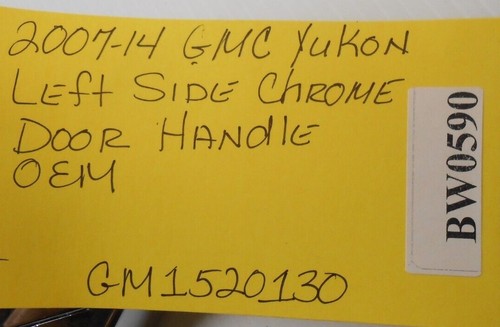 2007-14 GMC YUKON
LEft SIDE CHROME
DOOR HANdlE
OEM
GM1520130
BW0590